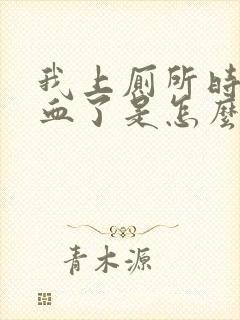 我上厕所时
血了是怎麽
青木源